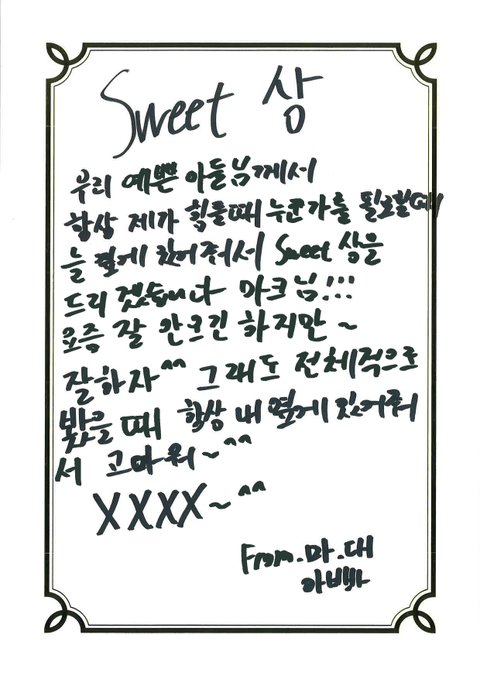 Sweet 상
우리 예쁜 아들님께서
항상 제가 힘들때 누군가를 필요할때
늘 곁에 있어줘서 Sweet 상을
드리겠습니다 마크님!!!
요즘 잘 안크긴 하지만~
잘하자^^ 그래도 전체적으로
봤을 때 항상 내 옆에 있어줘
서 고마워~^^
XXXX~^^
From.마.대
아빠